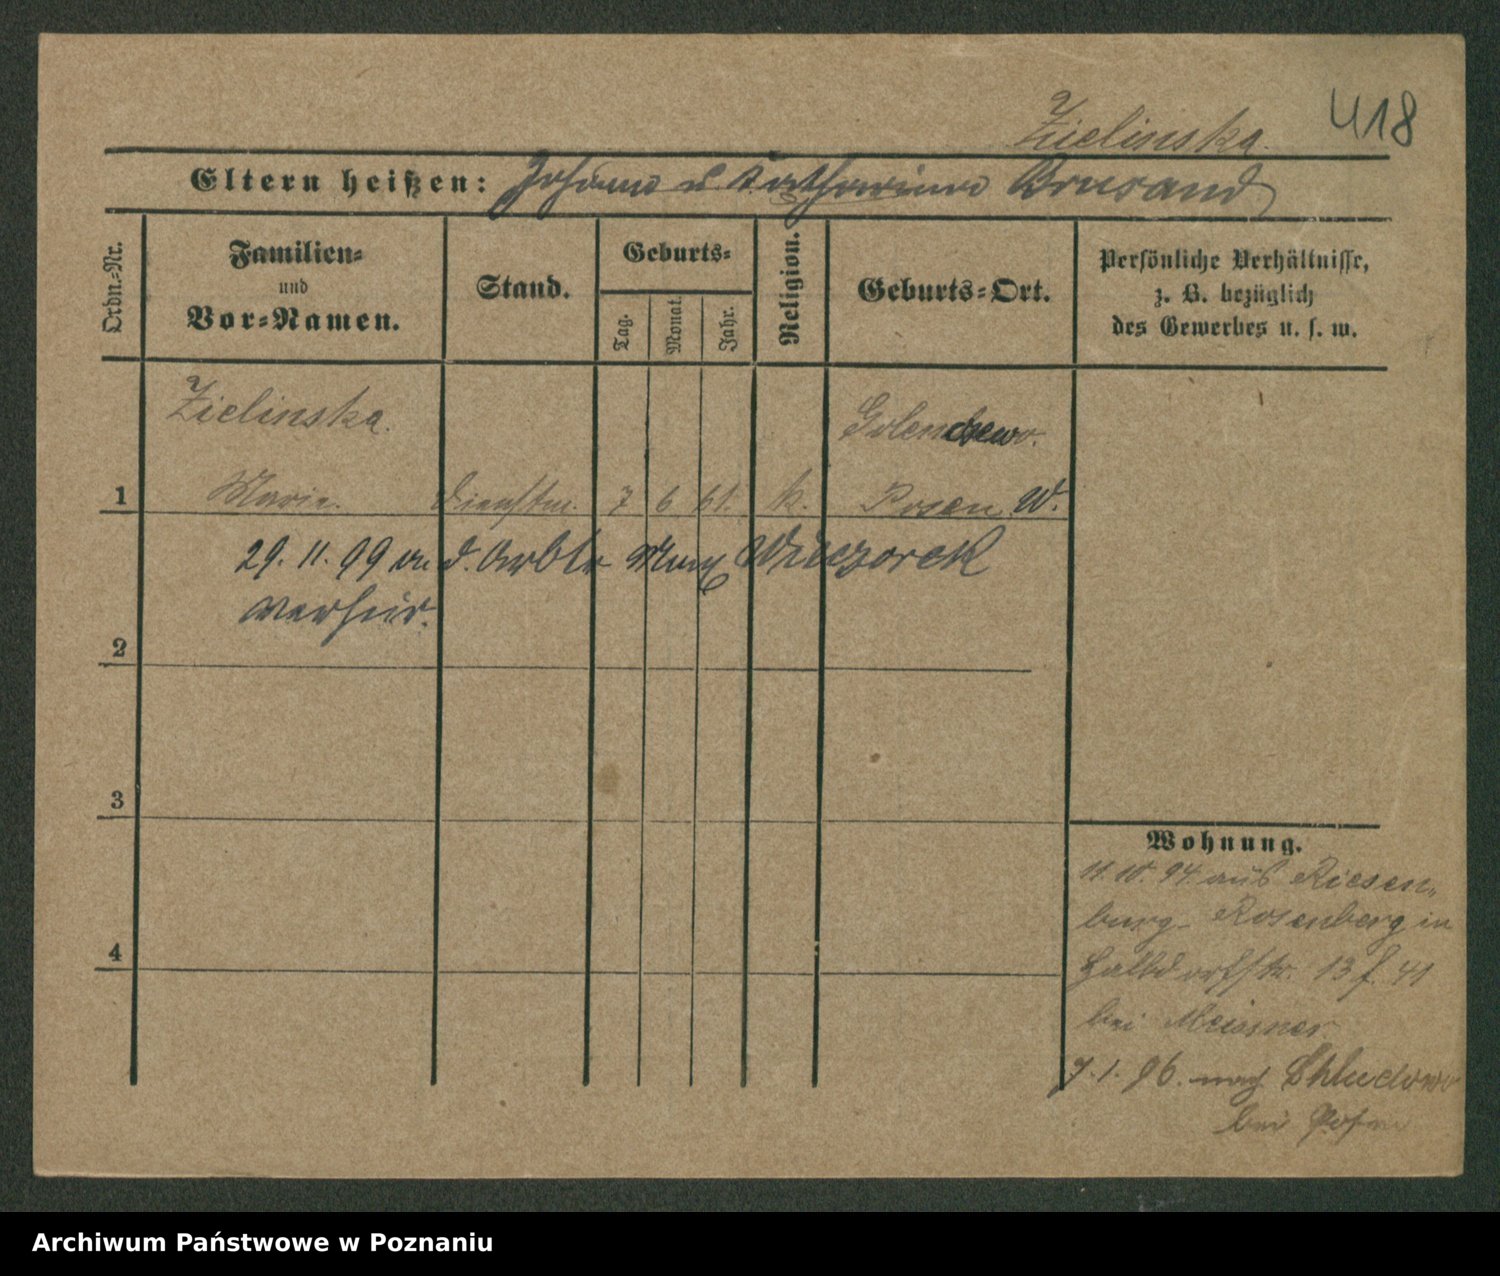 Zielinska.
418
Eltern heißen: Johann u Katharina Brusand
Ordn.=Nr.
Familien=
und
Vor=Namen.
Stand.
Geburts=
Tag.
Monat.
Jahr.
Religion.
Geburts=Ort.
Persönliche Verhältnisse,
z. B. bezüglich
des Gewerbes u. s. w.
Zielinska.
Golenczewo.
1 Marie. Dienstm. 7 6 61. k. Posen W.
29. 11. 99 an d. Arbtr Max Wieczorek
verheir.
2
3
4
Wohnung.
11. 10. 94. aus Riesen-
burg- Rosenberg in
Halbdorfstr. 13 f. 41
bei Meissner
7. 1. 96. nach Chludowo
bei Posen
Archiwum Państwowe w Poznaniu